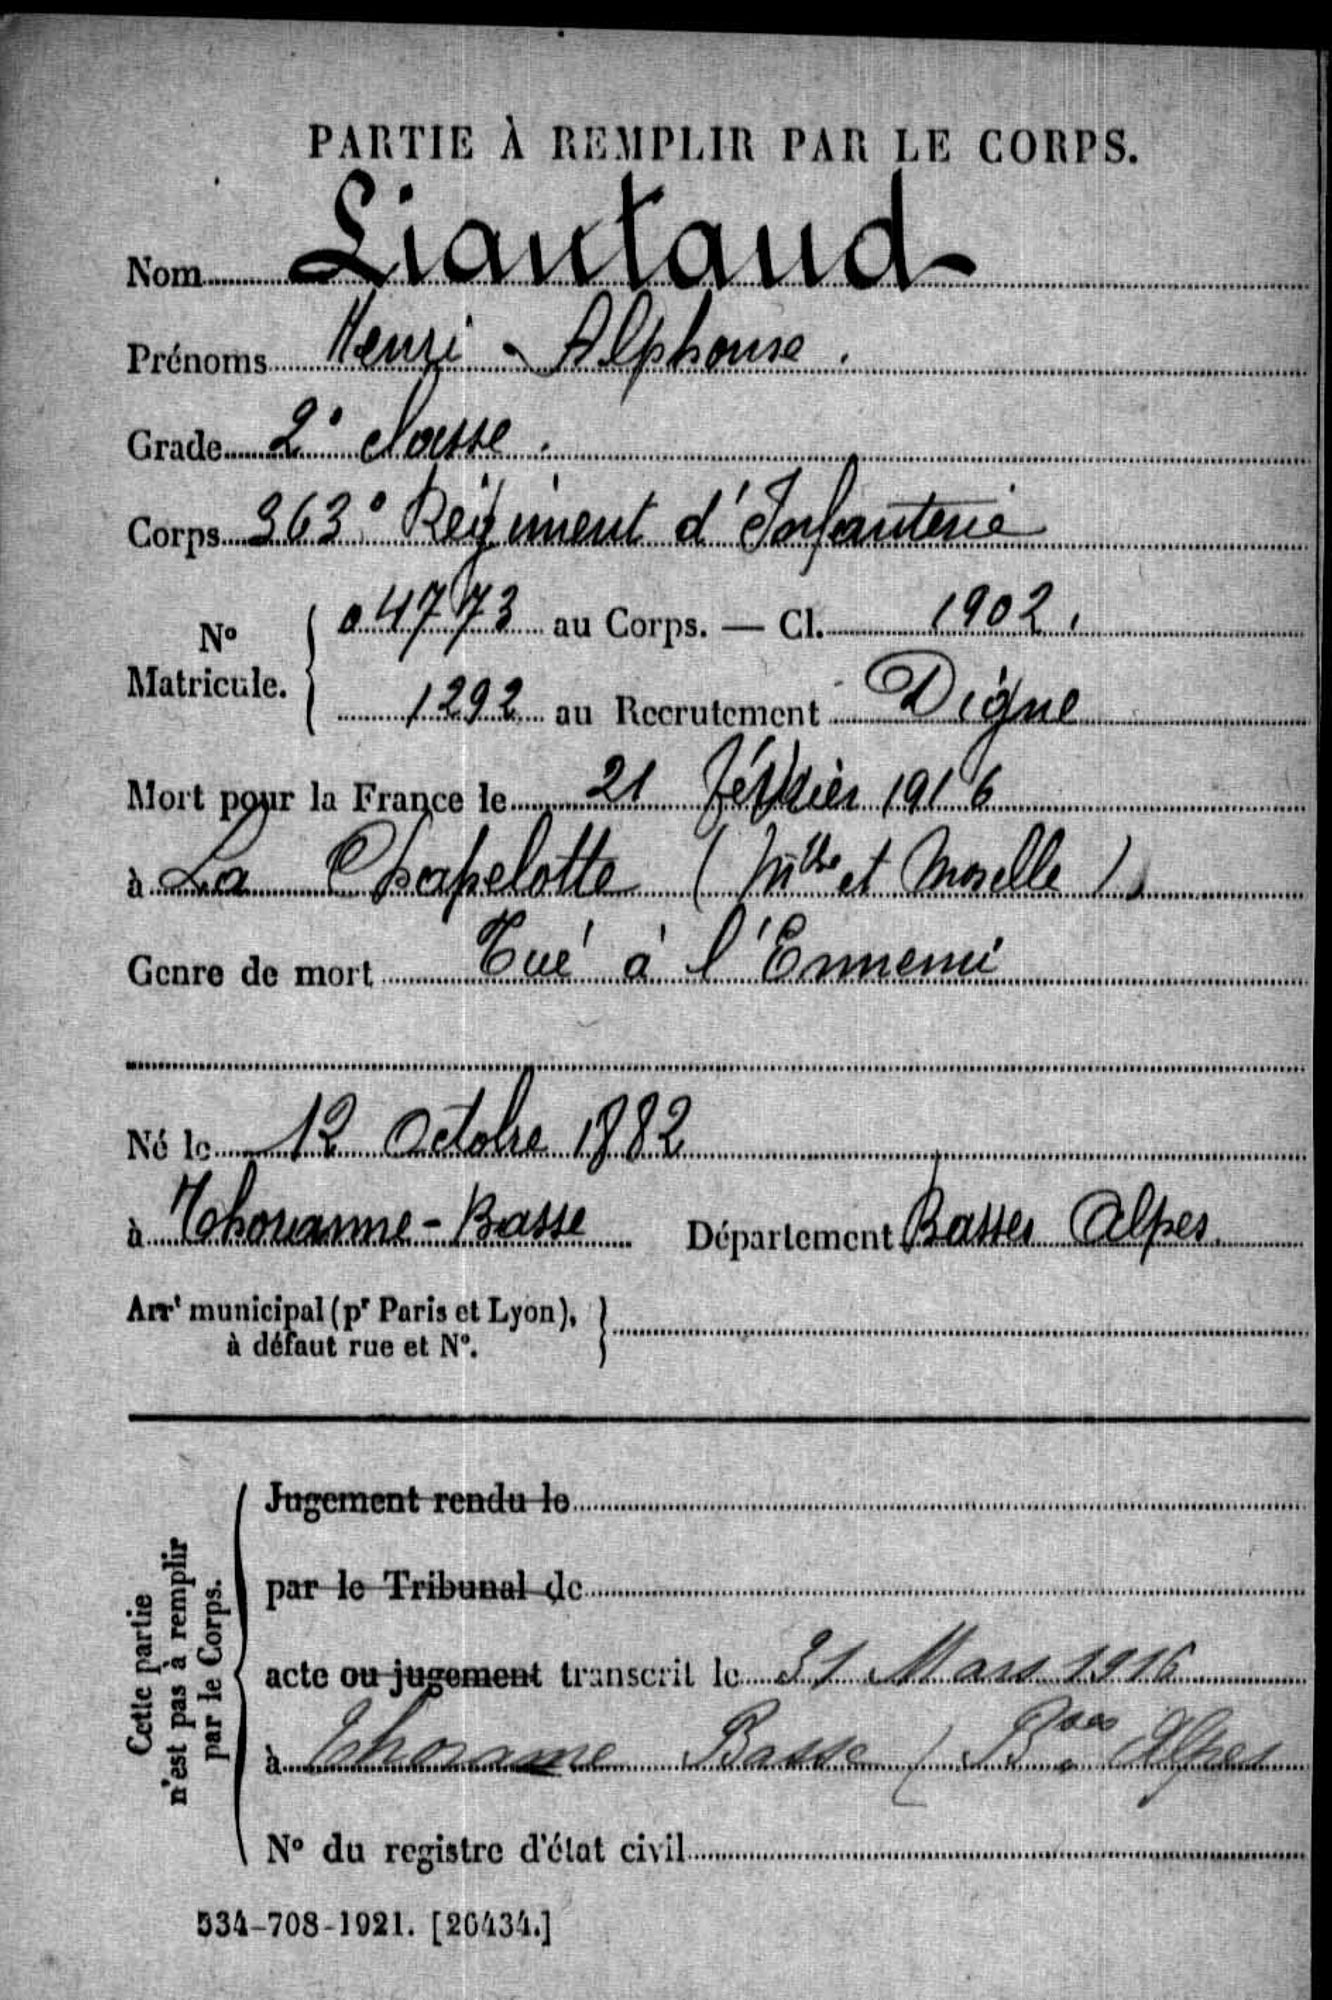 PARTIE À REMPLIR PAR LE CORPS.
Nom Liautaud
Prénoms Henri - Alphonse.
Grade 2e classe.
Corps 363e Régiment d'Infanterie
No Matricule. { 04773 au Corps. — Cl. 1902.
1292 au Recrutement Digne
Mort pour la France le 21 février 1916
à La Chapelotte (Mthe et Moselle)
Genre de mort Tué à l'Ennemi
Né le 12 Octobre 1882
à Thorame-Basse Département Basses Alpes
Arrt municipal (pr Paris et Lyon), à défaut rue et No. }
Cette partie n'est pas à remplir par le Corps.
Jugement rendu le
par le Tribunal de
acte ou jugement transcrit le 31 Mars 1916
à Thorame Basse (Bses Alpes
No du registre d'état civil
534-708-1921. [26434.]